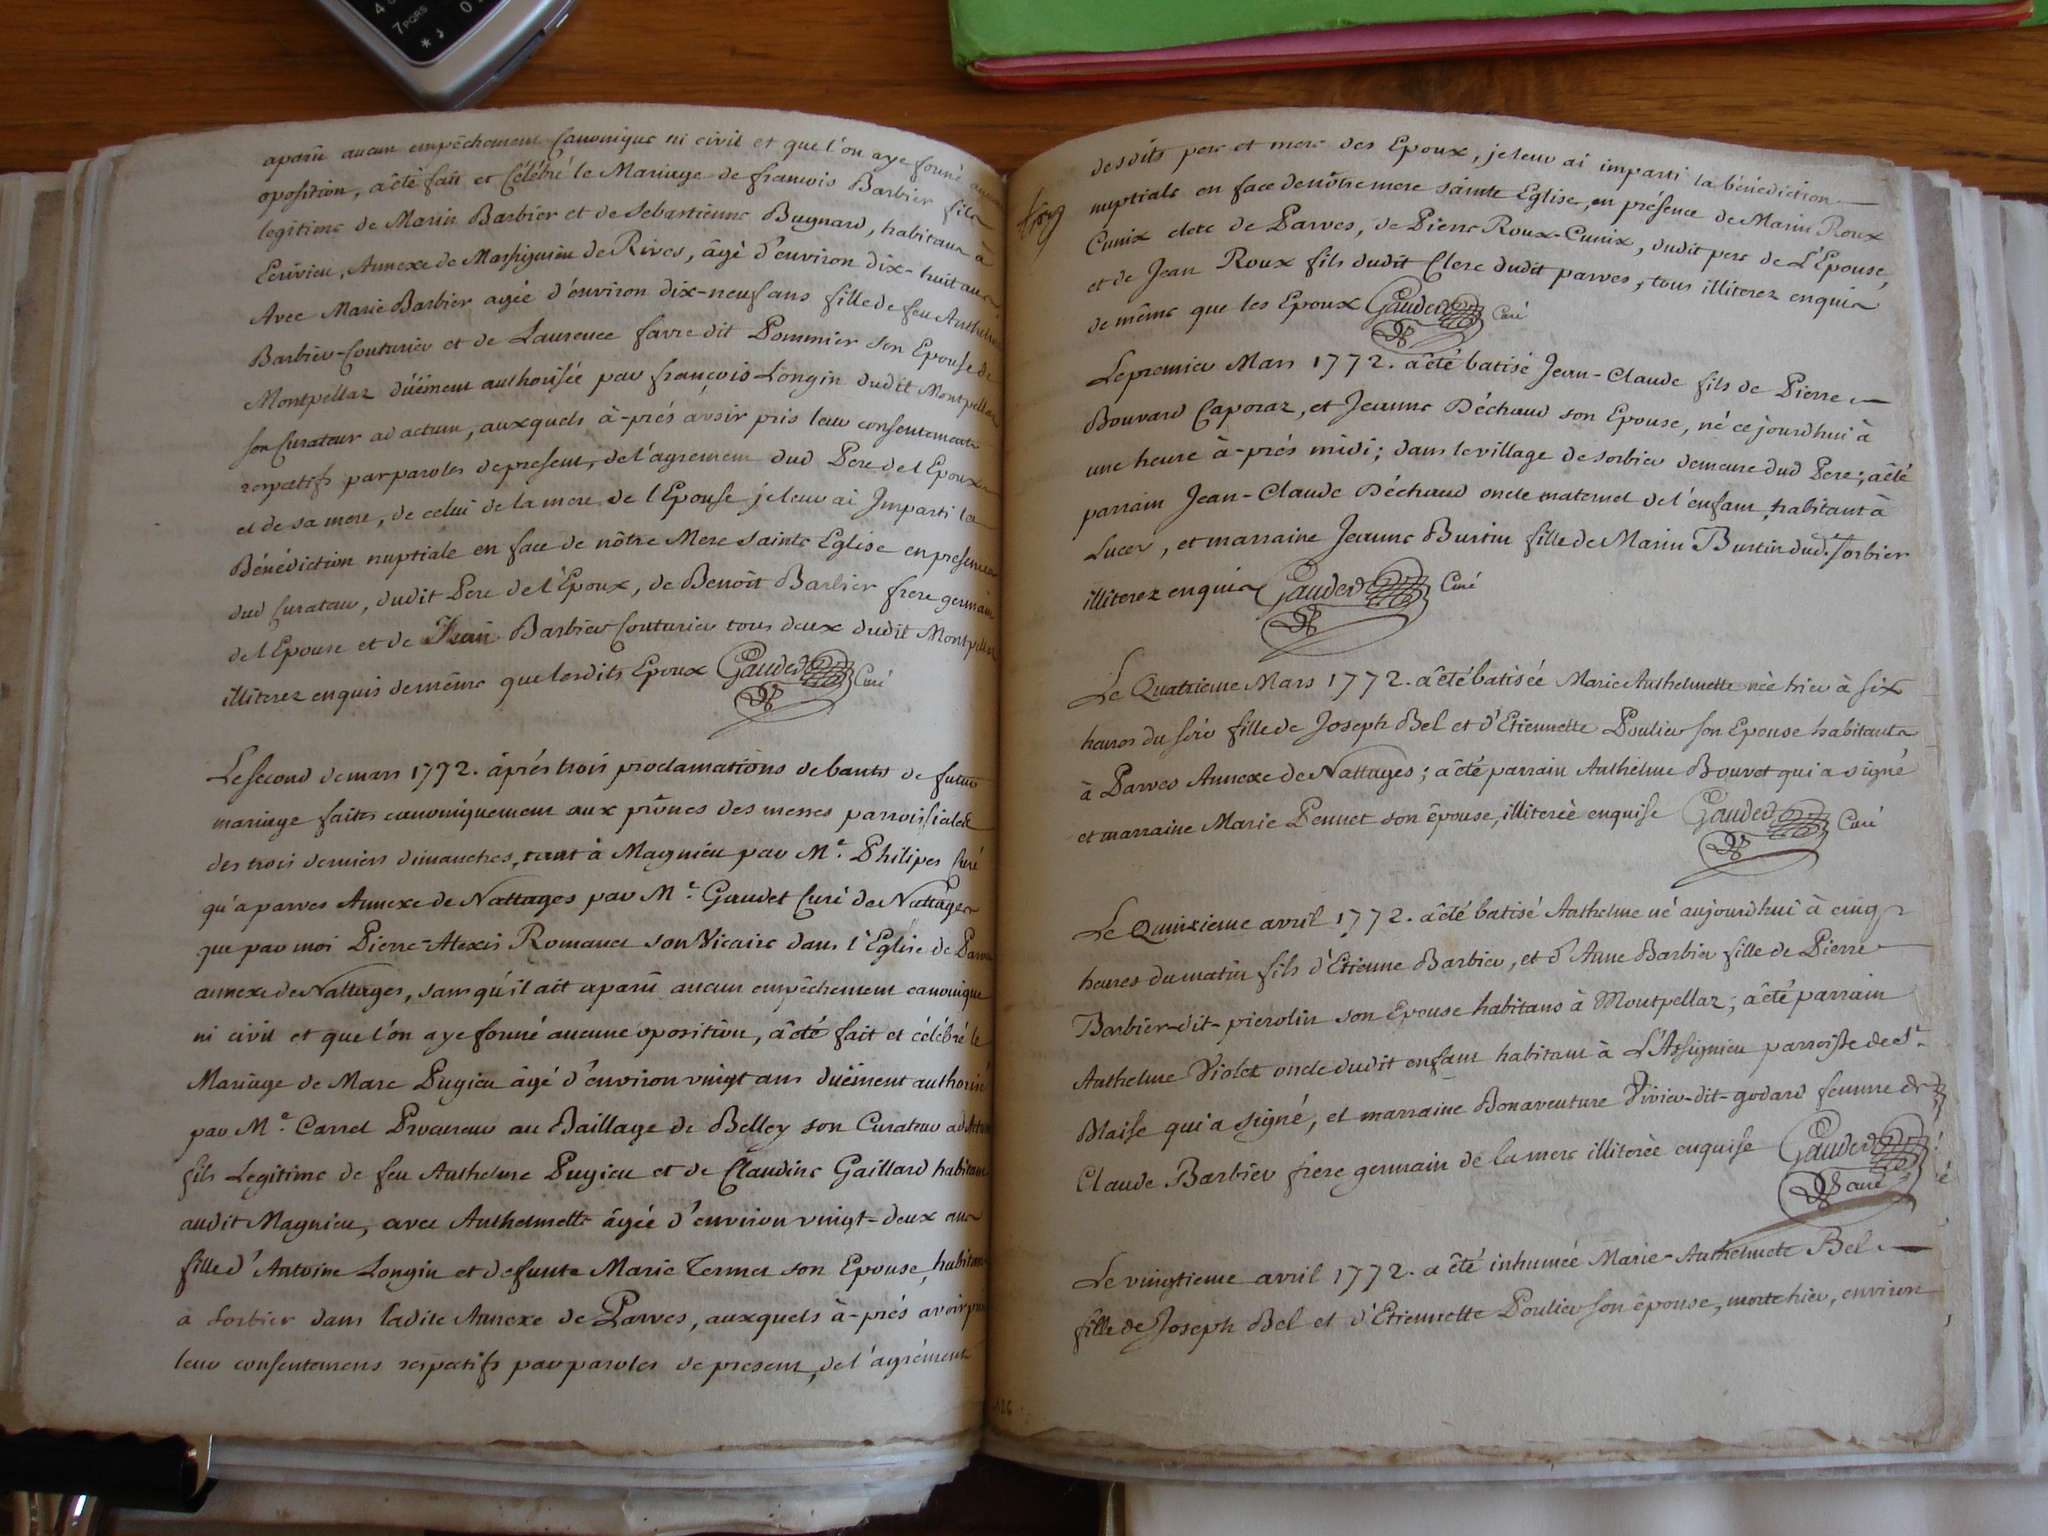 aparû aucun empêchement Canonique ni civil et que l'on aye formé
oposition, a été fait et Célébré le Mariage de francois Barbier fils
legitime de Marin Barbier et de Sebastienne Bugnard, habitans à
Ecrivieu, Annexe de Massignieu de Rives, âgé d'environ dix-huit ans
Avec Marie Barbier agée d'environ dix-neuf ans fille de feu Anthelme
Barbier-Couturier et de Laurence favre dit Pommier son Epouse de
Montpellaz düëment authorisée par françois Longin dudit Montpellaz
son Curateur ad actum, auxquels à-prés avoir pris leur consentement
respectifs par paroles de present, de l'agrement dud Pere de l'Epoux
et de sa mere, de celui de la mere de l'Epouse je leur ai Imparti la
Bénédiction nuptiale en face de nôtre Mere Sainte Eglise en presence
dud Curateur, dudit Pere de l'Epoux, de Benoît Barbier frere germain
de l'Epouse et de Jean Barbier Couturier tous deux dudit Montpellaz
illiterez enquis de même que lesdits Epoux Gaudet Curé
Le second de mars 1772. âprés trois proclamations de bants de futur
mariage faites canoniquement aux prônes des messes parroissiales
des trois derniers dimanches, tant à Magnieu par Mr. Philipes Curé
qu'a parves Annexe de Nattages par Mr. Gaudet Curé de Nattages
que par moi Pierre-Alexis Romanet son Vicaire dans l'Eglise de Parves
annexe de Nattages, sans qu'il ait aparû aucun empêchement canonique
ni civil et que l'on aye formé aucune oposition, a été fait et célébré le
Mariage de Marc Pugieu âgé d'environ vingt ans düëment authorisé
par Me. Carrel Procureur au Baillage de Belley son Curateur ad Actum
fils Legitime de feu Anthelme Pugieu et de Claudine Gaillard habitans
audit Magnieu, avec Anthelmette âgée d'environ vingt-deux ans
fille d'Antoine Longin et defunte Marie Termet son Epouse, habitans
a Sorbier dans ladite Annexe de Parves, auxquels à-prés avoir pris
leur consentemens respectifs par paroles de present, de l'agrément
desdits pere et mere des Epoux, je leur ai imparti la bénédiction
nuptiale en face de nôtre mere sainte Eglise, en présence de Marin Roux
Cunix clerc de Parves, de Pierre Roux-Cunix, dudit pere de L'Epouse,
et de Jean Roux fils dudit Clerc dudit parves, tous illiterez enquis
de même que les Epoux Gaudet Curé
Le premier Mars 1772. a été batisé Jean-Claude fils de Pierre
Bouvard Caporaz, et Jeanne Déchaud son Epouse, né cejourdhui à
une heure à-prés midi; dans le village de sorbier demeure dud Pere; a été
parrain Jean-Claude Déchaud oncle maternel de l'enfant, habitant à
Lucey, et marraine Jeanne Burtin fille de Marin Burtin dud. Sorbier
illiterez enquis Gaudet Curé
Le Quatrieme Mars 1772. a été batisée Marie Anthelmette née hier à six
heures du soir fille de Joseph Bel et d'Etiennette Poulier son Epouse habitants
à Parves Annexe de Nattages; a été parrain Anthelme Bouvet qui a signé
et marraine Marie Pennet son épouse, illiterée enquise Gaudet Curé
Le Quinzieme avril 1772. a été batisé Anthelme né aujourdhui à cinq
heures du matin fils d'Etienne Barbier, et d'Anne Barbier fille de Pierre
Barbier-dit-pierolin son Epouse habitans à Montpellaz; a été parrain
Anthelme Violet oncle dudit enfant habitant à L'Assignieu parroisse de St.
Blaise qui a signé, et marraine Bonaventure Vivier-dit-godard femme de
Claude Barbier frere germain de la mere illiterée enquise Gaudet
curé
Le vingtieme avril 1772. a été inhumée Marie-Anthelmete Bel
fille de Joseph Bel et d'Etiennette Poulier son épouse, morte hier, environ